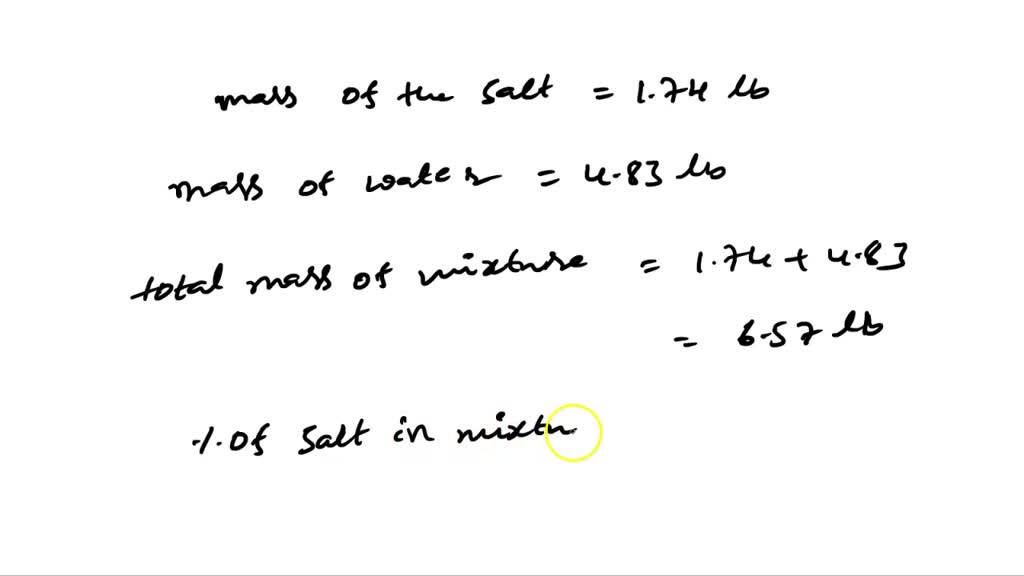 mass of the salt = 1.74 lb
mass of water = 4.83 lb
total mass of mixture = 1.74 + 4.83
= 6.57 lb
%.of salt in mixtu